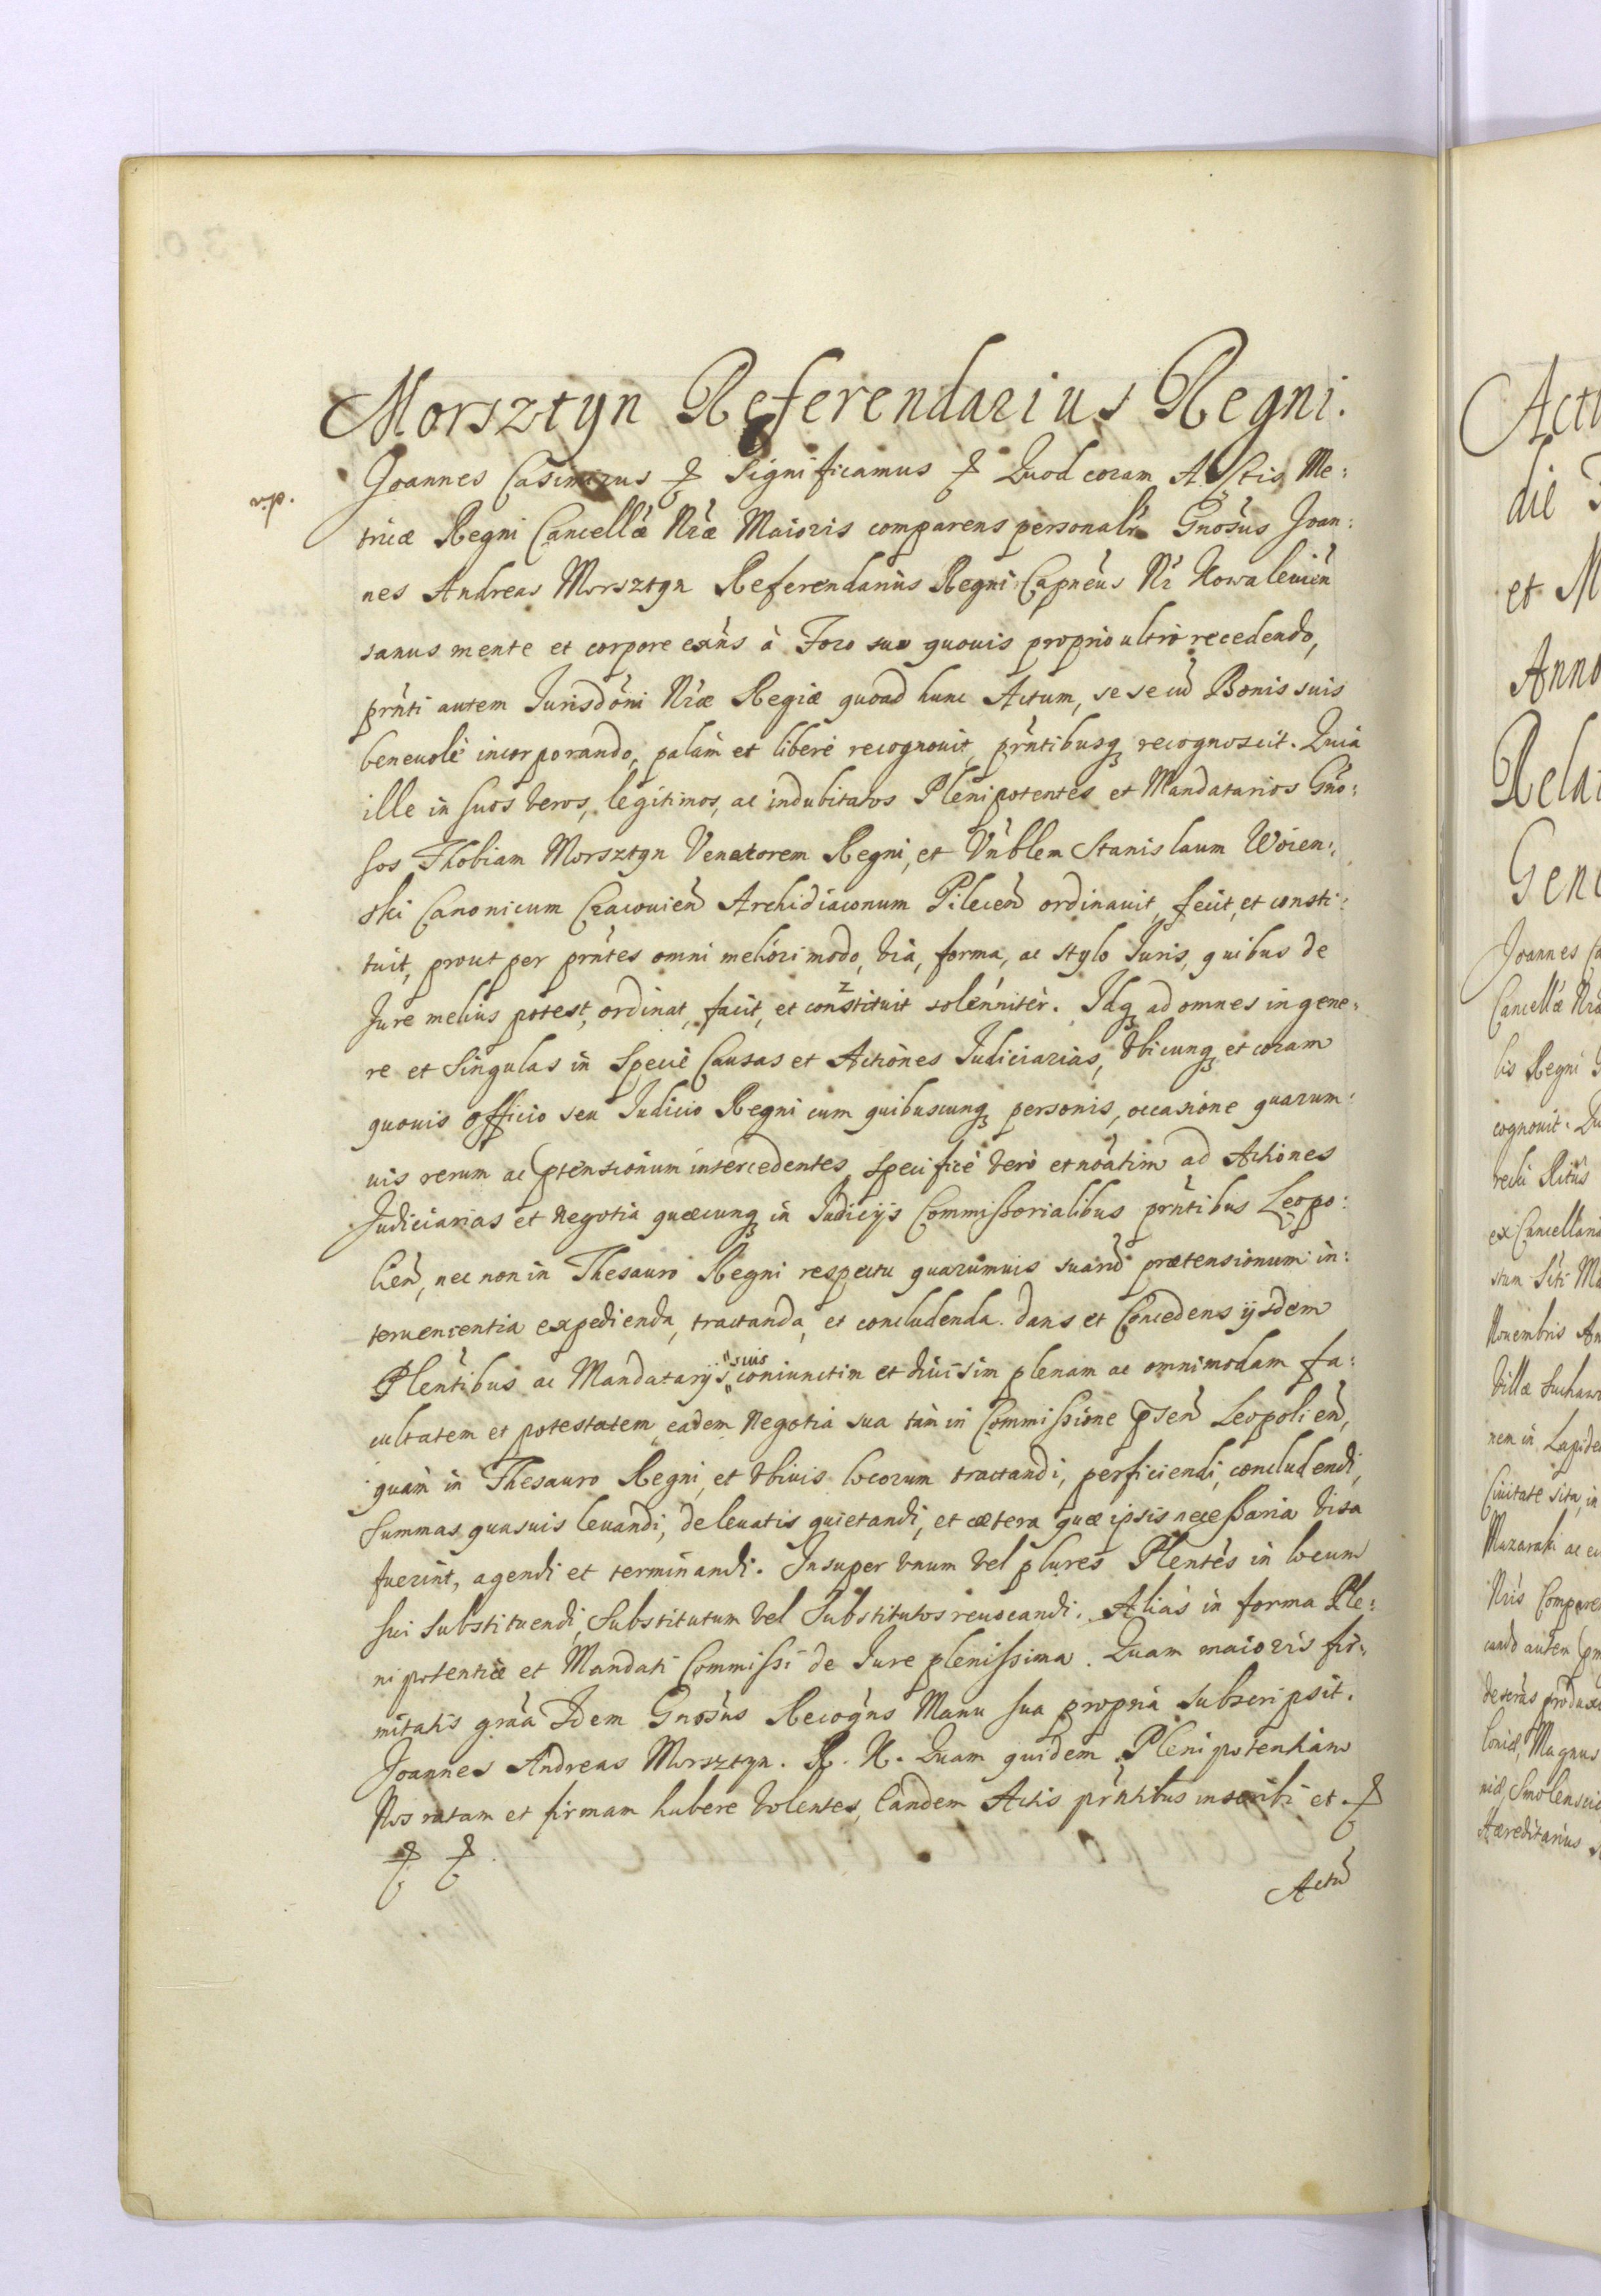 Morsztyn Referendarius Regni.
Joannes Casimirus Significamus Quod coram Actis Me:
tricæ Regni Cancellæ Nræ Maioris comparens personalr Gnosus Joan:
nes Andreas Morsztyn Referendarius Regni Capneus Nr Kowalevien
sanus mente et corpore exns à Foro suo quovis proprio ultrò recedendo,
prnti autem Jurisdoni Nræ Regiæ quoad hunc Actum, se se cũ Bonis suis
benevolè incorporando, palàm et liberè recognovit, prntibusq recognoscit. Quia
ille in suos veros, legitimos, ac indubitatos Plenipotentes et Mandatarios Gno:
sos Thobiam Morsztyn Venatorem Regni, et Vnblem Stanislaum Woien:
ski Canonicum Cracouien Archidiaconum Pilecen ordinavit, fecit, et consti:
tuit, prout per prntes omni meliori modo, via, forma, ac stylo Juris, quibus de
Jure melius potest, ordinat, facit, et constituit solenniter. Idq ad omnes in gene:
re et singulas in specie Causas et Actiones Judiciarias, vbicunq et coram
quovis officio seu Judicio Regni cum quibuscunq personis, occasione quarum:
vis rerum ac ptensionum intercedentes, specificè verò et noatim ad Actiones
Judiciarias et negotia quæcunq in Judicijs Commissorialibus prntibus Leopo:
lien, nec non in Thesauro Regni respectu quarumvis suarũ prætensionum in:
tervenientia expedienda, tractanda, et concludenda. dans et Concedens ijsdem
Plentibus ac Mandatarijs suis coniunctim et divisim plenam ac omnimodam fa:
cultatem et potestatem, eadem Negotia sua tàm in Commissione psen Leopolien,
quàm in Thesauro Regni, et vbivis locorum tractandi, perficiendi, concludendi,
summas quasvis levandi, de levatis quietandi, et cætera quæ ipsis necessaria visa
fuerint, agendi et terminandi. Insuper vnum vel plures Plentes in locum
sui substituendi, Substitutum vel Substitutos revocandi. Aliàs in forma Ple:
nipotentiæ et Mandati Commissi de Jure plenissima. Quam maioris fir:
mitatis graa Idem Gnosus Recogns Manu sua propria subscripsit.
Joannes Andreas Morsztyn. R. K. Quam quidem Plenipotentiam
Nos ratam et firmam habere volentes, Eandem Actis prntibus inscribi et
Actũ
Actu
die
et M
Anno
Rela
Gene
Joannes Ca
Cancellæ Nræ
lis Regni
cognovit. Qu
recti Ritus
ex Cancellaria
Novembris An
villæ Suchaw
nem in Lapide
Civitate sita, in
Mazaraki ac
Nris Compare
cando autem
Magnus
niæ, Smolensciæ
Hæreditarius